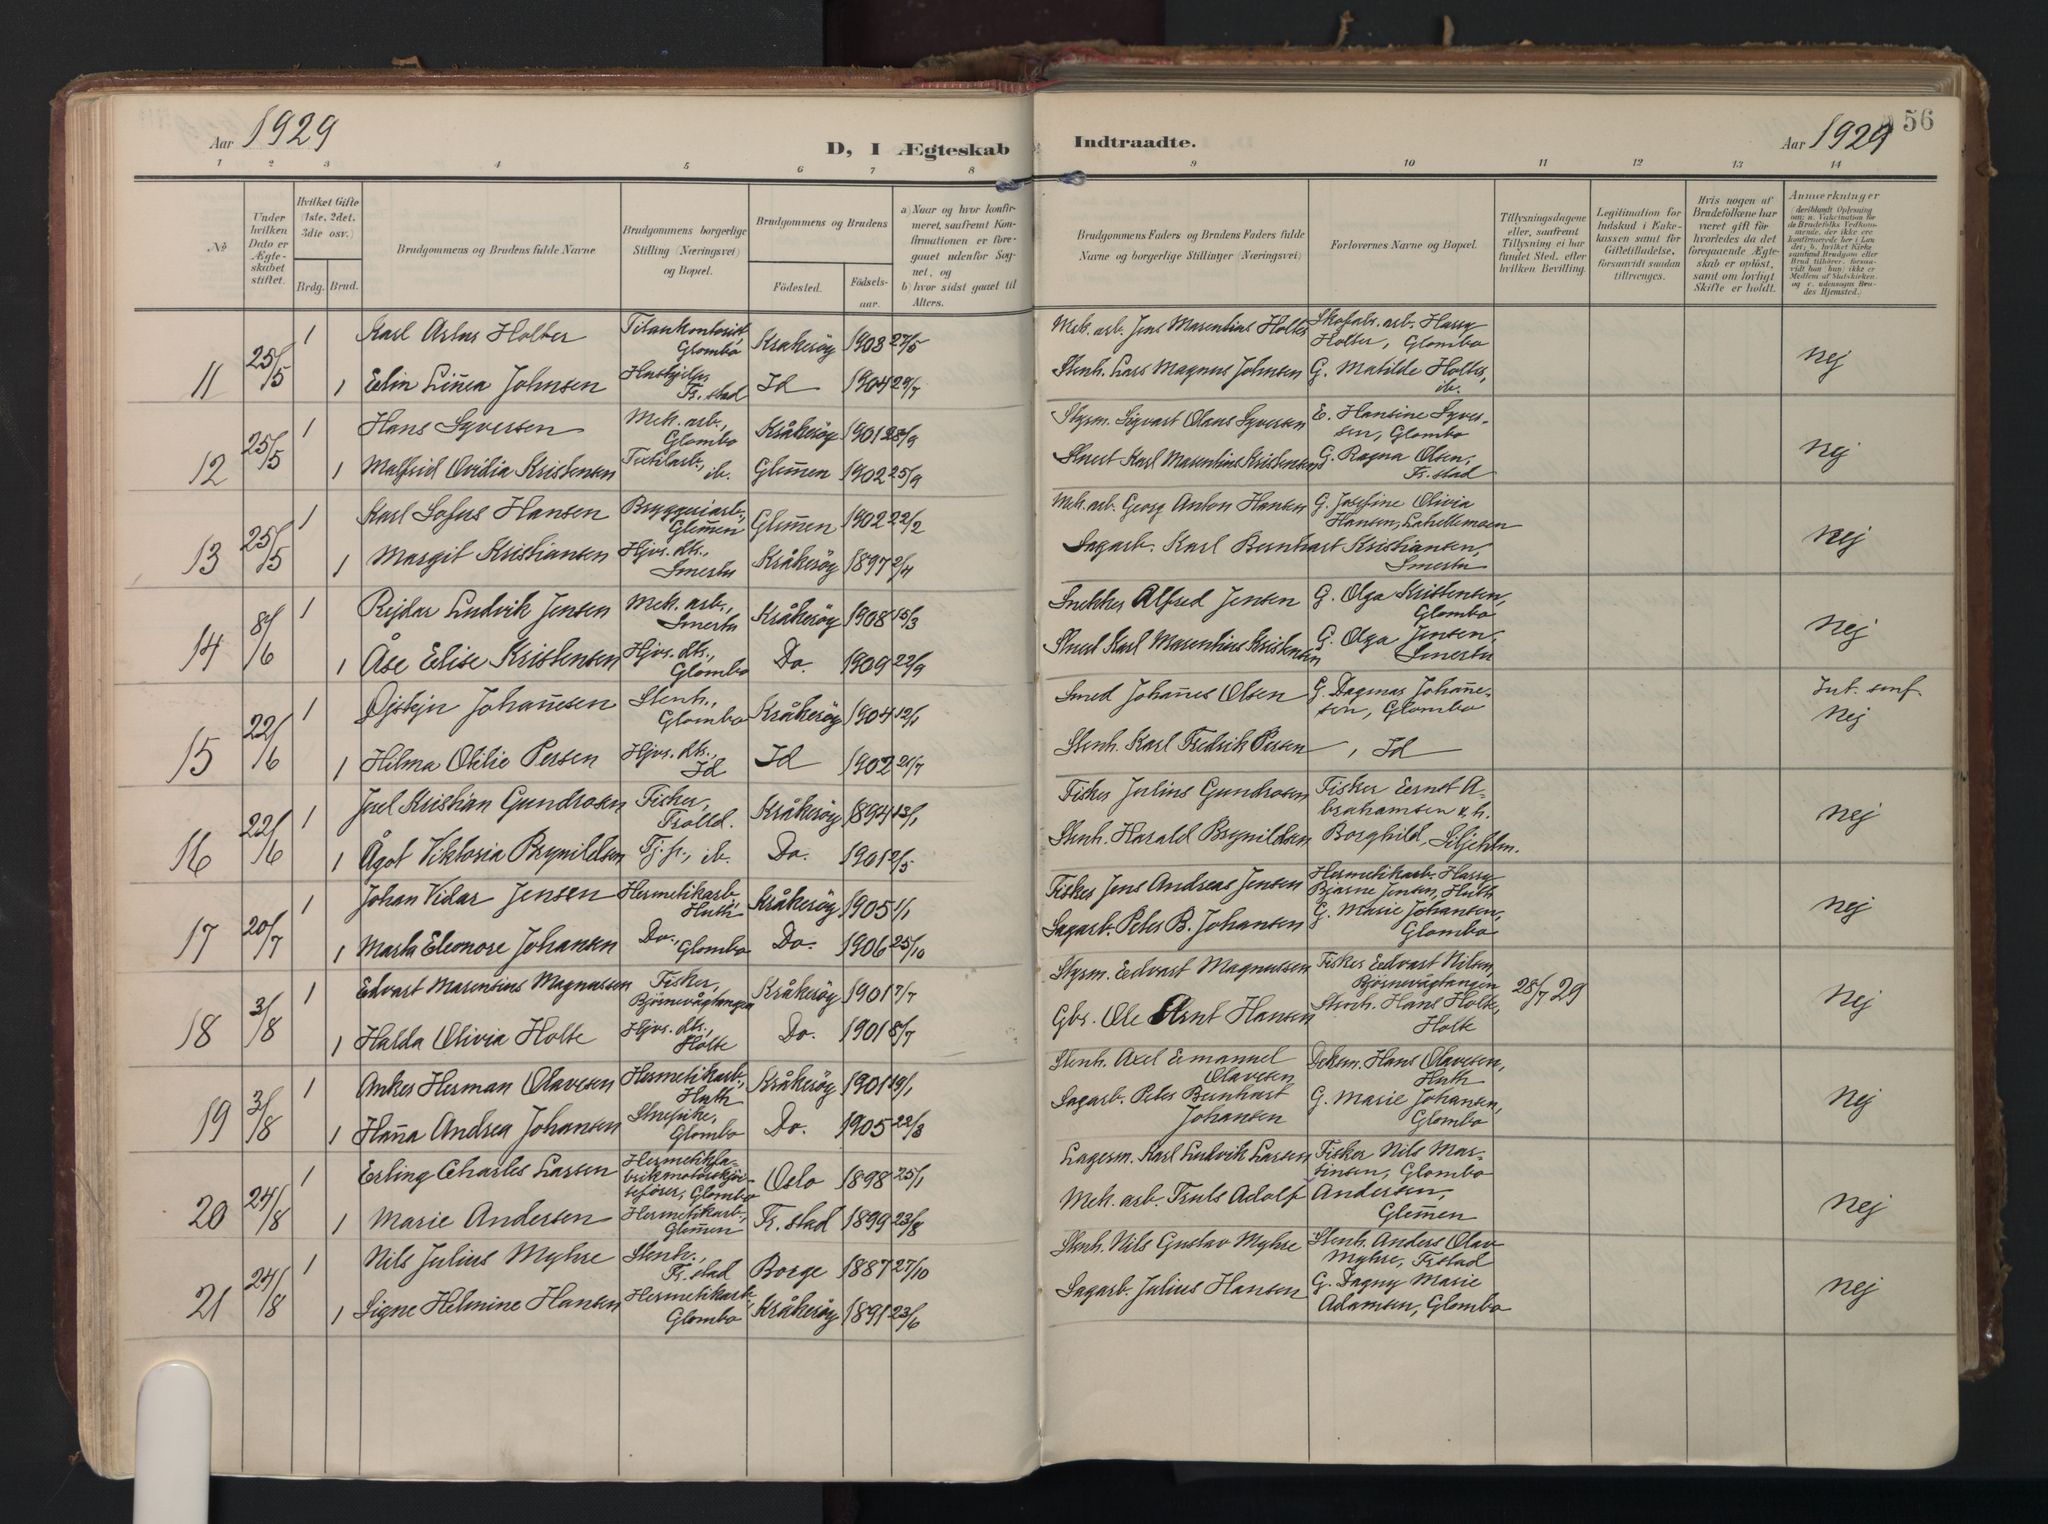 Aar 1929
D, I Ægteskab Indtraadte.
Aar 1929
56
1 2 3 4 5 6 7 8 9 10 11 12 13 14
No
Under hvilken Dato er Ægteskabet stiftet.
Hvilket Gifte (1ste, 2det, 3die osv.)
Brdg. Brud.
Brudgommens og Brudens fulde Navne
Brudgommens borgerlige Stilling (Næringsvei) og Bopæl.
Brudgommens og Brudens
Födested. Födselsaar.
a) Naar og hvor konfirmeret, saafremt Konfirmationen er foregaaet udenfor Sognet, og
b) hvor sidst gaaet til Alters.
Brudgommens Faders og Brudens Faders fulde Navne og borgerlige Stillinger (Næringsvei)
Forlovernes Navne og Bopæl.
Tillysningsdagene eller, saafremt Tillysning ei har fundet Sted, efter hvilken Bevilling.
Legitimation for Indskud i Enkekassen samt for Giftetilladelse, forsaavidt saadan tiltrænges.
Hvis nogen af Brudefolkene har været gift før hvorledes da det foregaaende Ægteskab er oplöst, samt om lovligt Skifte er holdt.
Anmærkninger
11 25/5 1 Karl Artur Holter Titankontorist, Glombo Kråkeröy 1903 27/5 Mek. arb. Jens Marentius Holter Skofabr. arb. Harry Holter, Glombo nej
1 Elin Linea Johnsen Fr.stad Id 1904 29/7 Stenh. Lars Magnus Johnsen G. Matilde Holter, ib.
12 25/5 1 Hans Syversen Mek. arb., Glombo Kråkeröy 1901 28/9 Styrm. Sigvart Olaus Syversen E. Hansine Syversen, Glombo nej
1 Malfrid Ovidia Kristensen ib. Glemmen 1902 25/9 Karl Marentius Kristensen G. Ragna Olsen, Fr.stad
13 25/5 1 Karl Sofus Hansen Bryggeriarb., Glemmen Glemmen 1902 22/2 Mek. arb. Georg Anton Hansen G. Josefine Olivia Hansen, Lahellemoen nej
1 Margit Kristiansen Hjv. dtr., Smertu Kråkeröy 1897 2/4 Sagarb. Karl Bernhart Kristiansen, Smertu
14 8/6 1 Rejdar Ludvik Jensen Mek. arb., Smertu Kråkeröy 1908 15/3 Snekker Alfred Jensen G. Olga Kristensen, Glombo nej
1 Åse Elise Kristensen Hjv. dtr., Glombo Do. 1909 22/9 Karl Marentius Kristensen G. Olga Jensen, Smertu
15 22/6 1 Øjstejn Johannesen Stenh., Glombo Kråkeröy 1904 12/1 Smed Johannes Olsen G. Dagmar Johannesen, Glombo Int. smf. nej
1 Hilma Otilie Persen Hjv. dtr., Id Id 1902 21/7 Stenh. Karl Fredrik Persen, Id
16 22/6 1 Juel Kristian Gundrosen Fisker, Trolld. Kråkeröy 1894 13/1 Fisker Julius Gundrosen Fisker Ernst Abrahamsen & h. nej
1 Ågot Viktoria Brynildsen Tj.p., ib. Do. 1901 2/5 Stenh. Harald Brynildsen Borghild, Siljehlm.
17 20/7 1 Johan Vidar Jensen Hermetikarb., Huth Kråkeröy 1905 1/1 Fisker Jens Andreas Jensen Hermetikarb. Harry Bjarne Jensen, Huth nej
1 Marta Eleonore Johansen Do., Glombo Do. 1906 25/10 Sagarb. Peter B. Johansen G. Marie Johansen, Glombo
18 3/8 1 Edvart Marentius Magnussen Fisker, Bjørnevågtangen Kråkeröy 1901 7/7 Styrm. Edvart Magnussen Fisker Edvart Nilsen, Bjørnevågtangen 28/7 29 nej
1 Halda Olivia Holte Hjv. dtr., Holte Do. 1901 8/7 Gbr. Ole Arnt Hansen Hans Holte, Holte
19 3/8 1 Anker Herman Olavesen Hermetikarb., Huth Kråkeröy 1901 19/1 Stenh. Axel Emanuel Olavesen Deksm. Hans Olavesen, Huth nej
1 Hanna Andrea Johansen Glombo Do. 1905 22/3 Sagarb. Peter Bernhart Johansen G. Marie Johansen, Glombo
20 24/8 1 Erling Charles Larsen Glombo Oslo 1898 25/1 Lagerm. Karl Ludvik Larsen Fisker Nils Martinsen, Glombo nej
1 Marie Andersen Hermetikarb., Glemmen Fr. stad 1899 23/8 Mek. arb. Truls Adolf Andersen, Glemmen
21 24/8 1 Nils Julius Myhre Stenh., Fr.stad Borge 1887 27/10 Stenh. Nils Gustav Myhre Stenh. Anders Olav Myhre, Frstad nej
1 Signe Helmine Hansen Hermetikarb., Glombo Kråkeröy 1891 23/6 Sagarb. Julius Hansen G. Dagny Marie Adamsen, Glombo